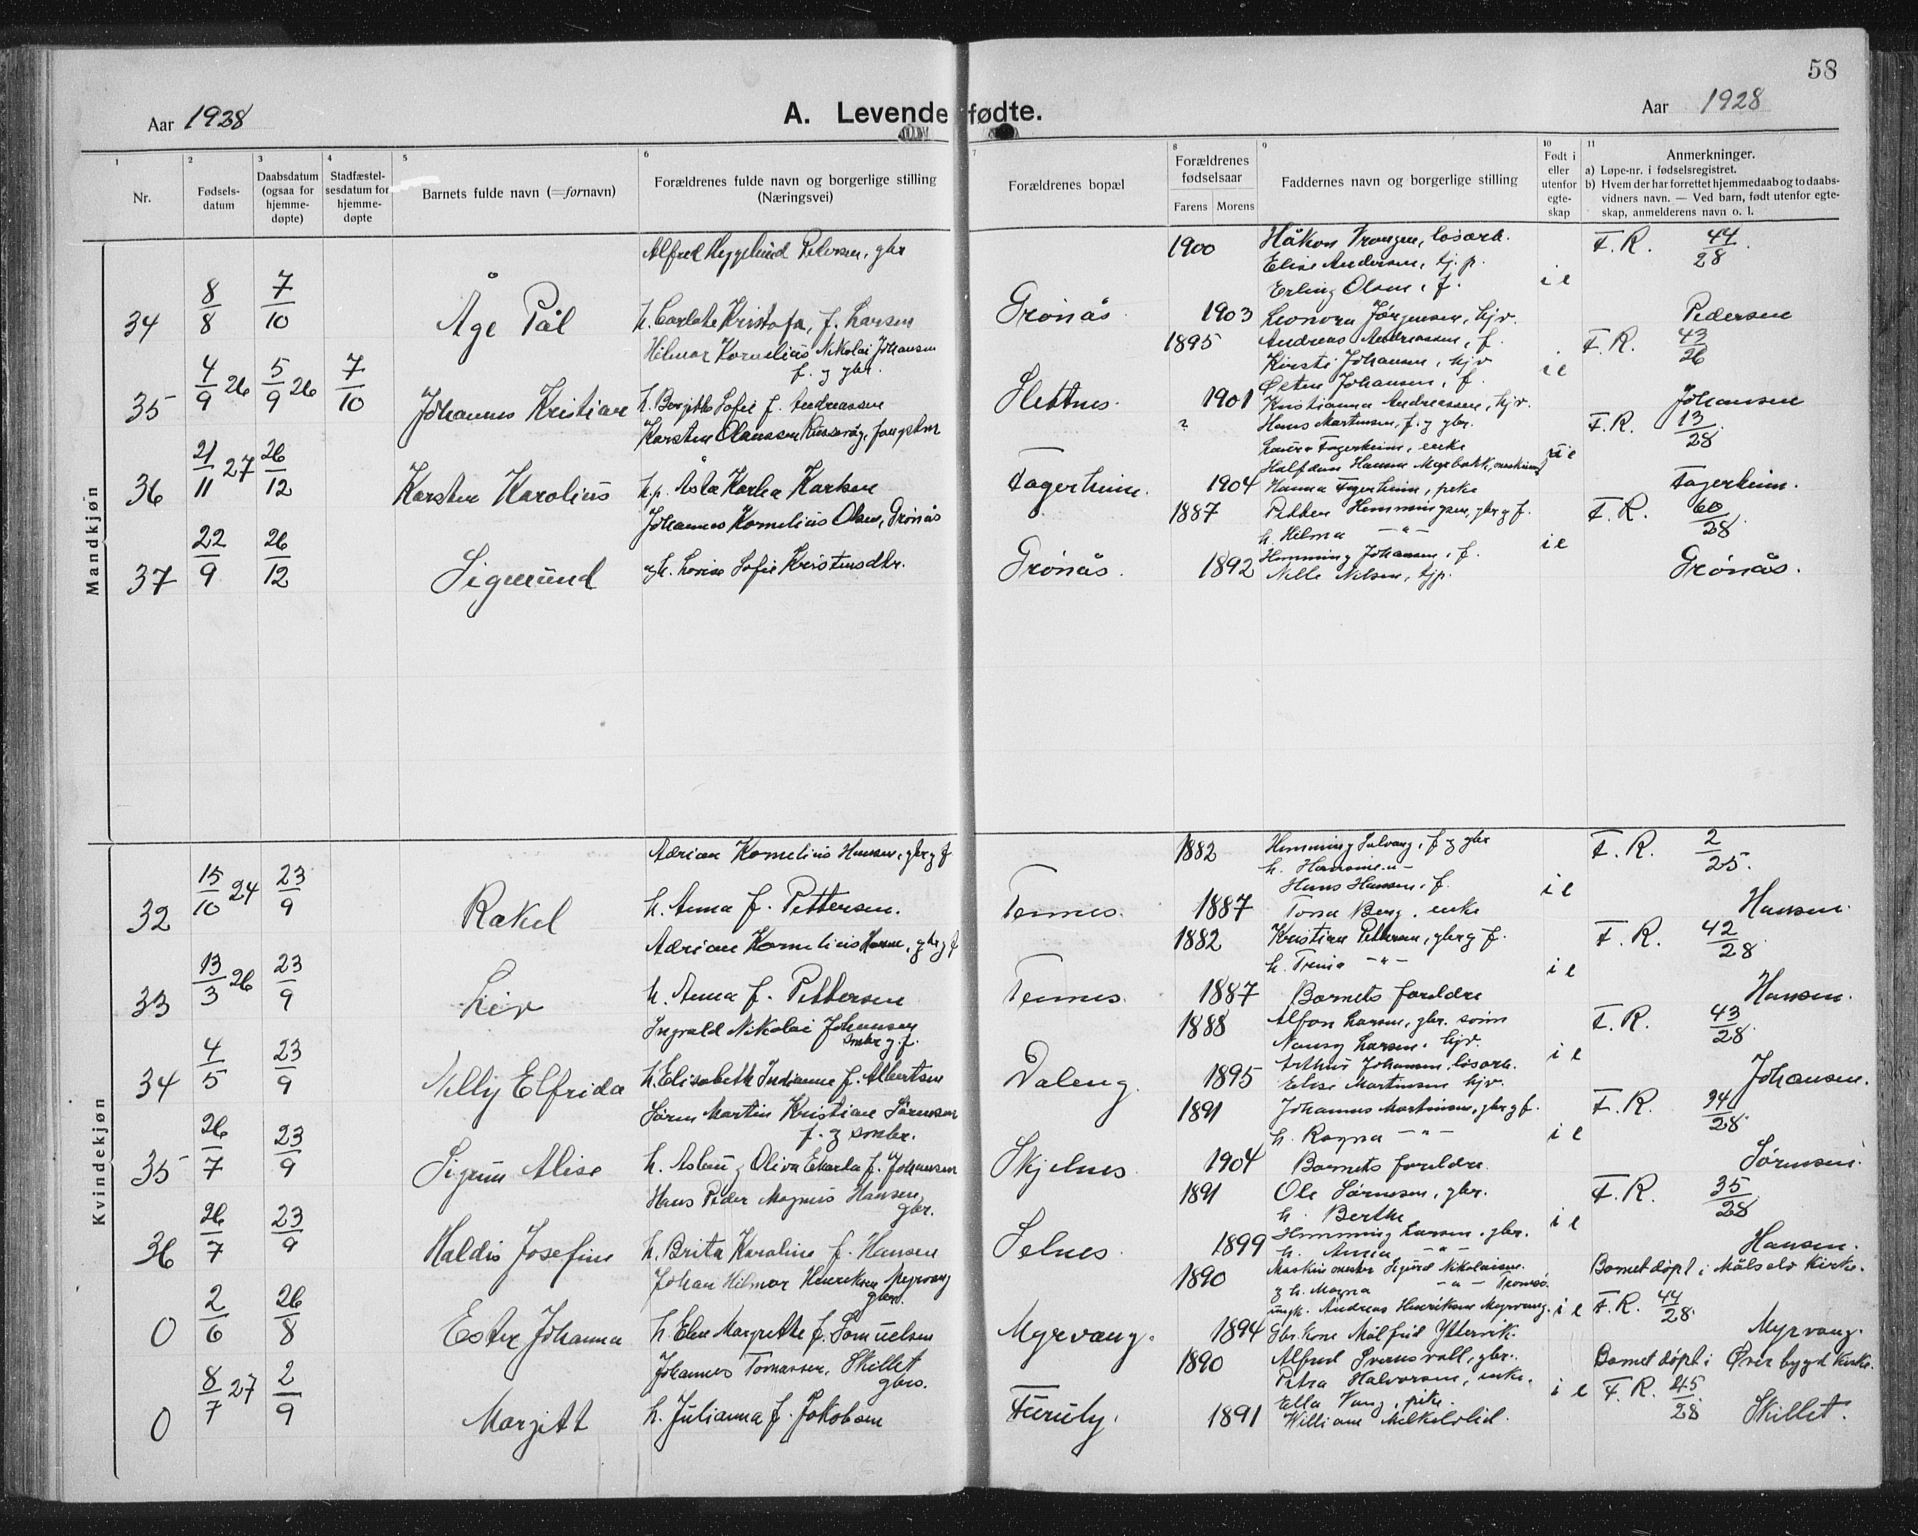 58
Aar 1928
A. Levende fødte.
Aar 1928
1 2 3 4 5 6 7 8 9 10 11
Nr.
Fødsels-
datum
Daabsdatum
(ogsaa for
hjemme-
døpte)
Stadfæstel-
sesdatum for
hjemme-
døpte
Barnets fulde navn (=fornavn)
Forældrenes fulde navn og borgerlige stilling
(Næringsvei)
Forældrenes bopæl
Forældrenes
fødselsaar
Farens Morens
Faddernes navn og borgerlige stilling
Født i
eller
utenfor
egte-
skap
Anmerkninger.
a) Løpe-nr. i fødselsregistret.
b) Hvem der har forrettet hjemmedaab og to daabs-
vidners navn. — Ved barn, født utenfor egte-
skap, anmelderens navn o. l.
Mandkjøn
34 8/8 7/10 Åge Pål
Alfred Heggelund Pedersen, gbr
h. Carlote Kristofa, f. Larsen
Grønås. 1900 1903
Håkon Vrangen, løsarb.
Elise Andersen, tj. p.
Erling Olsen, f.
Leonora Jørgensen, hjv.
i e F. R. 44/28. Pedersen
35 4/9 26 5/9 26 7/10 Johannes Kristian
Hilmar Kornelius Nikolai Johansen
f. g gbr.
h. Bergitte Sofie f. Andreassen
Slettnes. 1895 1901
Andreas Andreassen, f.
Kirsti Johansen, hjv
Johansen, f.
Kristianna Andreassen, hjv.
i e F. R. 43/26 Johansen
36 21/11 27 26/12 Karsten Karolius
Karsten Olaussen
h. p. Åsta Karla Karlsen
Fagerheim. ? 1904
Hans Martinsen, f. g gbr.
Laura Fagerheim, enke
Halfdan Hansen Myrbakk,
Hanna Fagerheim, pike
u e F. R. 13/28. Fagerheim.
37 22/9 26/12 Sigmund
Johannes Kornelius Olsen, Grønås
g h. Lovise Sofie Kristensdtr.
Grønås. 1887 1892
Petter Hemmingsen, gbr g f.
h. Hilma —"—
Hemming Johansen, f.
Nelle Nilsen, tjp.
i e F. R. 60/28. Grønås.
Kvindekjøn
32 15/10 24 23/9 Rakel
Adrian Kornelius Hansen, gbr g f
h. Anna f. Pettersen.
Tennes. 1882 1887
Hemming Sulvang, f g gbr
h. Hansine —"—
Hans Hansen, f.
Tona Berg, enke
i e F. R. 2/25. Hansen.
33 13/3 26 23/9 Liv
Adrian Kornelius Hansen, gbr g f
h. Anna f. Pettersen
Tennes. 1882 1887
Kristian Pettersen, gbr g f.
h. Trina —"—
Barnets foreldre
i e F. R. 42/28. Hansen.
34 4/5 23/9 Nelly Elfrida
Ingvald Nikolai Johansen
smbr g. f.
h. Elisabeth Indianne f. Albertsen
Daleng. 1888 1895
Alfon Larsen, gbr. sønn
Nansy Larsen, hjv.
Arthur Johansen, løsarb.
Elise Martinsen hjv.
i e F. R. 43/28. Johansen.
35 26/7 23/9 Sigrun Alise
Søren Martin Kristian Sørensen
f. g smbr.
h. Aslaug Oliva Ekarda f. Johansen
Skjelnes. 1891 1904
Johannes Martinsen, gbr g f.
h. Ragna —"—
Barnets foreldre.
i e F. R. 34/28. Sørensen.
36 26/7 23/9 Haldis Josefine
Hans Peder Magnus Hansen
gbr.
h. Brita Karoline f. Hansen
Selnes. 1891 1899
Ole Sørensen, gbr.
h. Berthe
Hemming Larsen, gbr.
h. Anna —"—
i e F. R. 35/28. Hansen.
0 2/6 26/8 Ester Johanna
Johan Hilmar Henriksen Myrvang
gbr.
h. Elen Margrethe f. Samuelsen
Myrvang. 1890 1894
Sigurd Nikolaisen
g h. Magna —"— Tromsø
ungk. Andreas Henriksen Myrvang.
Gbr. kone Målfrid Yttervik.
i e Barnet døpt i Målselv kirke.
F. R. 44/28. Myrvang.
0 8/7 27 2/9 Margitt
Johannes Tomassen, Skillet
gbr.
h. Julianna f. Jakobsen
Furuly. 1890 1891
Alfred Sverresvall, gbr.
Petra Halvorsen, enke.
Ella Vang, pike.
William Melkelvlid.
i e Barnet døpt i Øverbygd kirke.
F. R. 45/28 Skillet.